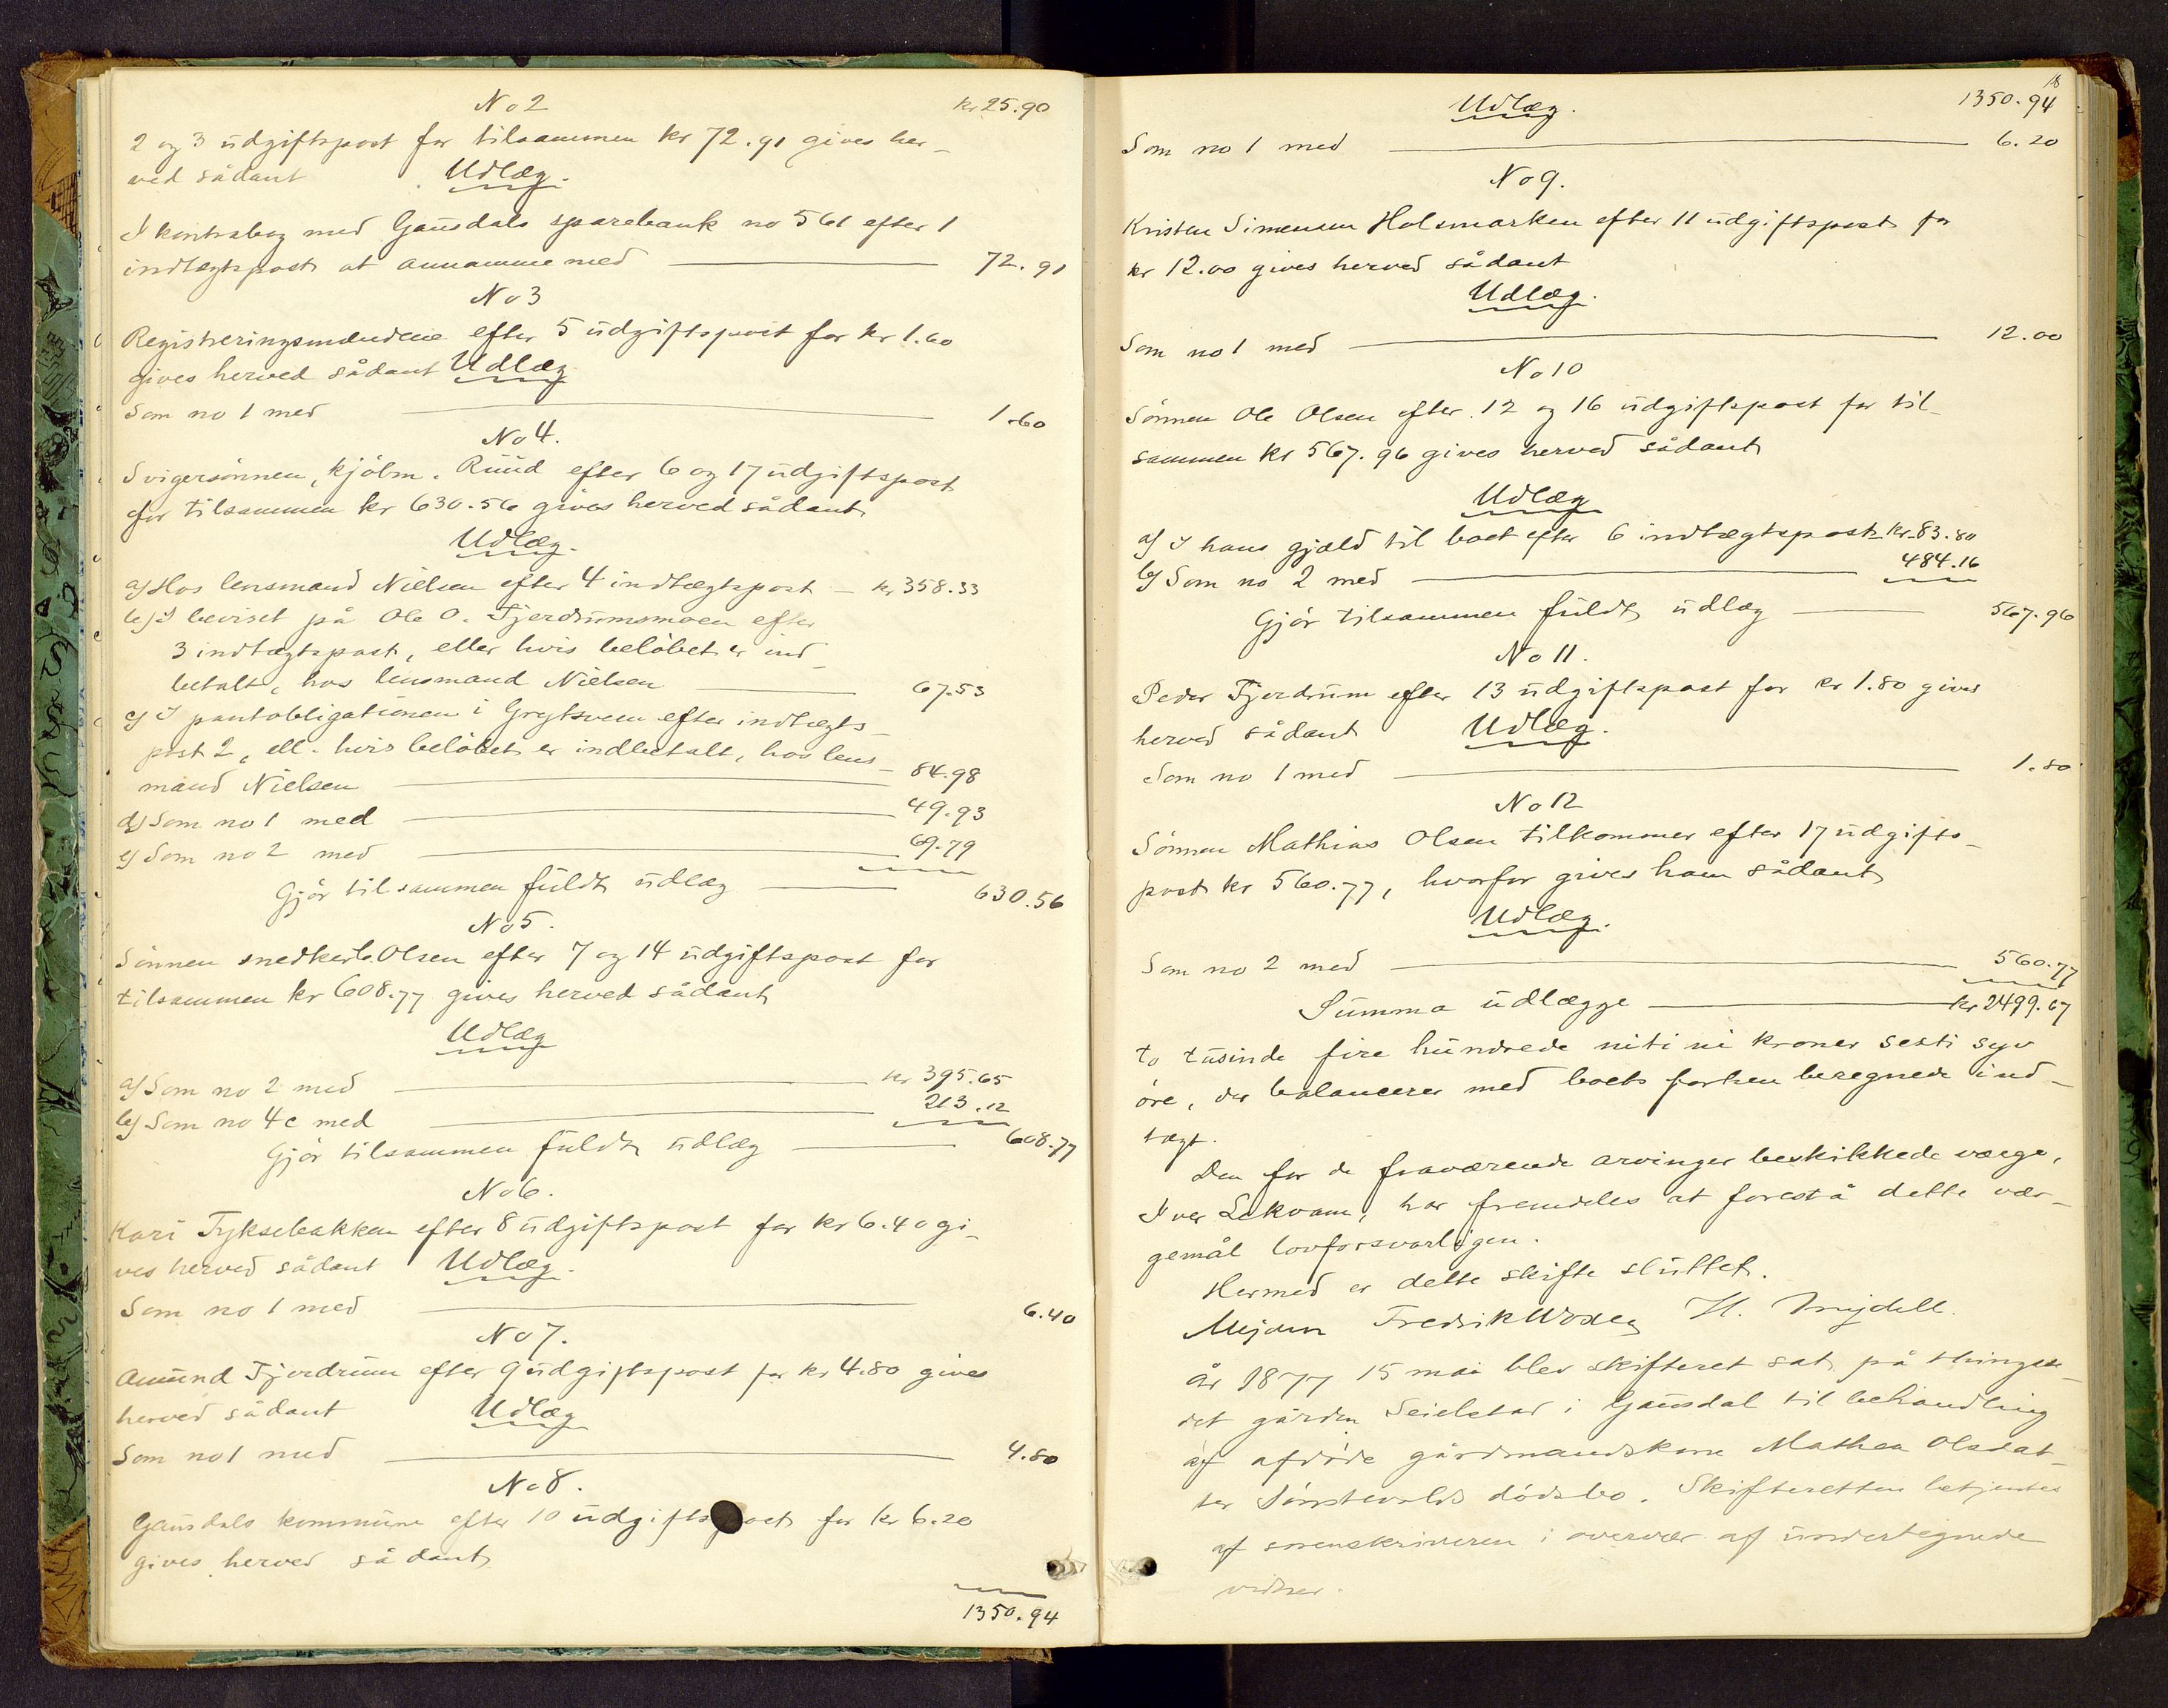 No 2 kr 25.90
2 og 3 üdgiftspost for tilsammen kr 72.91 gives her-
ved sådant Udlæg.
I kontrabog med Gaüsdals sparebank no 561 efter 1
indtægtspost at annamme med 72.91
No 3
Registreringsmændene efter 5 üdgiftspost for kr 1.60
gives herved sådant Udlæg
Som no 1 med 1.60
No 4.
Svigersönnen, kjöbm. Rüüd efter 6 og 17 üdgiftspost
for tilsammen kr 630.56 gives herved sådant
Udlæg.
a) Hos lensmand Nielsen efter 4 indtægtspost - kr 358.33
b) I beviset på Ole O. Fjerdümsmoen efter
3 indtægtspost, eller hvis belöbet er ind-
betalt, hos lensmand Nielsen 67.53
c) I pantobligationen i Grytsveen efter indtægts-
post 2, ell. hvis belöbet er indbetalt, hos lens-
mand Nielsen 84.98
d) Som no 1 med 49.93
e) Som no 2 med 69.79
Gjör tilsammen füldt üdlæg 630.56
No 5.
Sönnen snedker Olsen efter 7 og 14 üdgiftspost for
tilsammen kr 608.77 gives herved sådant
Udlæg
a) Som no 2 med kr 395.65
b) Som no 4c med 213.12
Gjör tilsammen füldt üdlæg 608.77
No 6.
Kari Tyksebakken efter 8 üdgiftspost for kr 6.40 gi-
ves herved sådant Udlæg.
Som no 1 med 6.40
No 7.
Amünd Fjerdrüm efter 9 üdgiftspost for kr 4.80 gives
herved sådant Udlæg
Som no 1 med 4.80
No 8.
Gaüsdals kommüne efter 10 üdgiftspost for kr 6.20
gives herved sådant
1350.94
18
Udlæg. 1350.94
Som no 1 med 6.20
No 9.
Kristen Simensen Holsmarken efter 11 üdgiftspost for
kr 12.00 gives herved sådant
Udlæg.
Som no 1 med 12.00
No 10
Sönnen Ole Olsen efter 12 og 16 üdgiftspost for til-
sammen kr 567.96 gives herved sådant
Udlæg
a) I hans gjæld til boet efter 6 indtægtspost kr 83.80
b) Som no 2 med 484.16
Gjör tilsammen füldt üdlæg 567.96
No 11.
Peder Fjerdrüm efter 13 üdgiftspost for kr 1.80 gives
herved sådant Udlæg.
Som no 1 med 1.80
No 12
Sönnen Mathias Olsen tilkommer efter 17 üdgifts-
post kr 560.77, hvorfor gives ham sådant
Udlæg.
Som no 2 med 560.77
Sümma üdlægge kr 2499.67
to tüsinde fire hündrede niti ni kroner sexti syv
öre, der balancerer med boets forhen beregnede ind-
tægt.
Den for de fraværende arvinger beskikkede værge,
Iver Lekvam, har fremdeles at forestå dette vær-
gemål lovforsvarligen.
Hermed er dette skifte slüttet.
Mejdell Fredrik Woxen H. Mejdell.
År 1877 15 mai blev skifteret sat på thingste-
det gården Seielstad i Gaüsdal til behandling
af afdöde gårdmandskone Mathea Olsdat-
ter Sönstevolds dödsbo. Skifteretten betjentes
af sorenskriveren i overvær af ündertegnede
vidner.